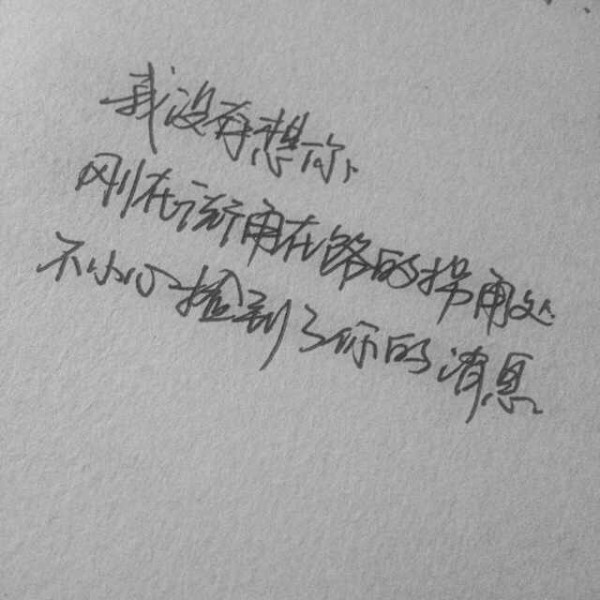 我没有想你
刚在该角在路的拐角处
不小心捡到了你的消息